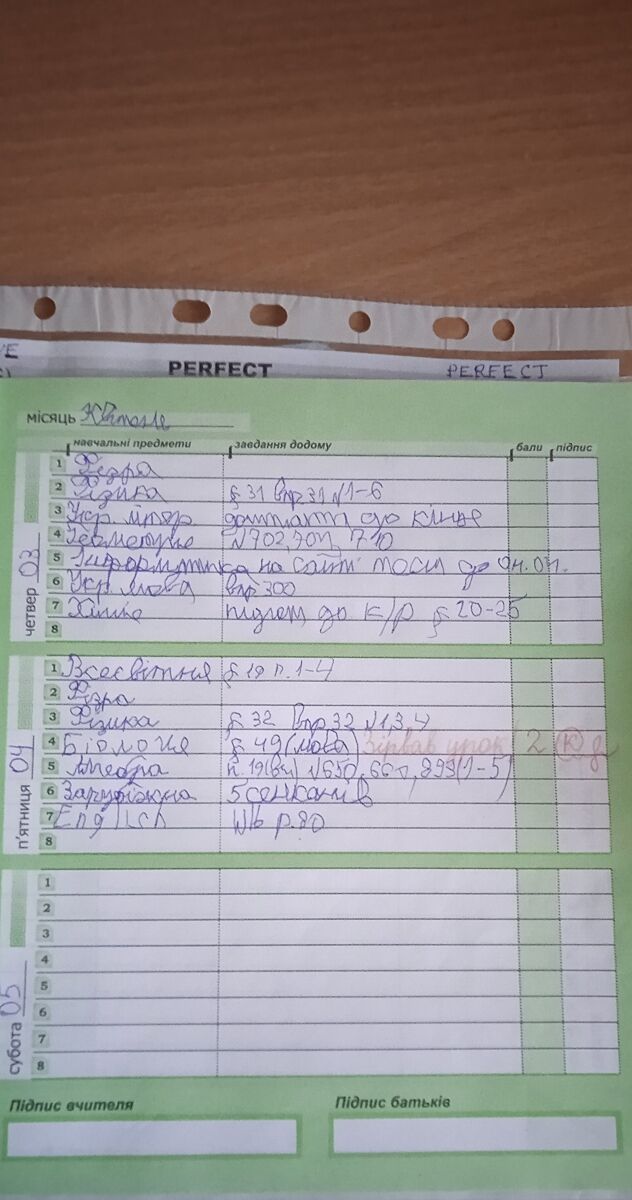 PERFECT PERFECT
місяць
навчальні предмети завдання додому бали підпис
четвер 03
1 Фізра
2 Фізика § 31 впр 31 №1-6
3 Укр літер до кінце
4 Геометріе №702, 710
5 Інформатика на сайті до
6 Укр мова впр 300
7 Хіміе до к/р § 20-25
8
п'ятниця 04
1 Всесвітня § 19 п. 1-4
2 Фізра
3 Фізика § 32 Впр 32 №1 3,4
4 Біологіе § 49 (мова) Зірвав урок 2
5 Алгебра п. 19 (вч) №650, 660, 899 (1-5)
6 Зарубіжна 5 сенканів
7 English W/b p. 80
8
субота 05
1
2
3
4
5
6
7
8
Підпис вчителя Підпис батьків